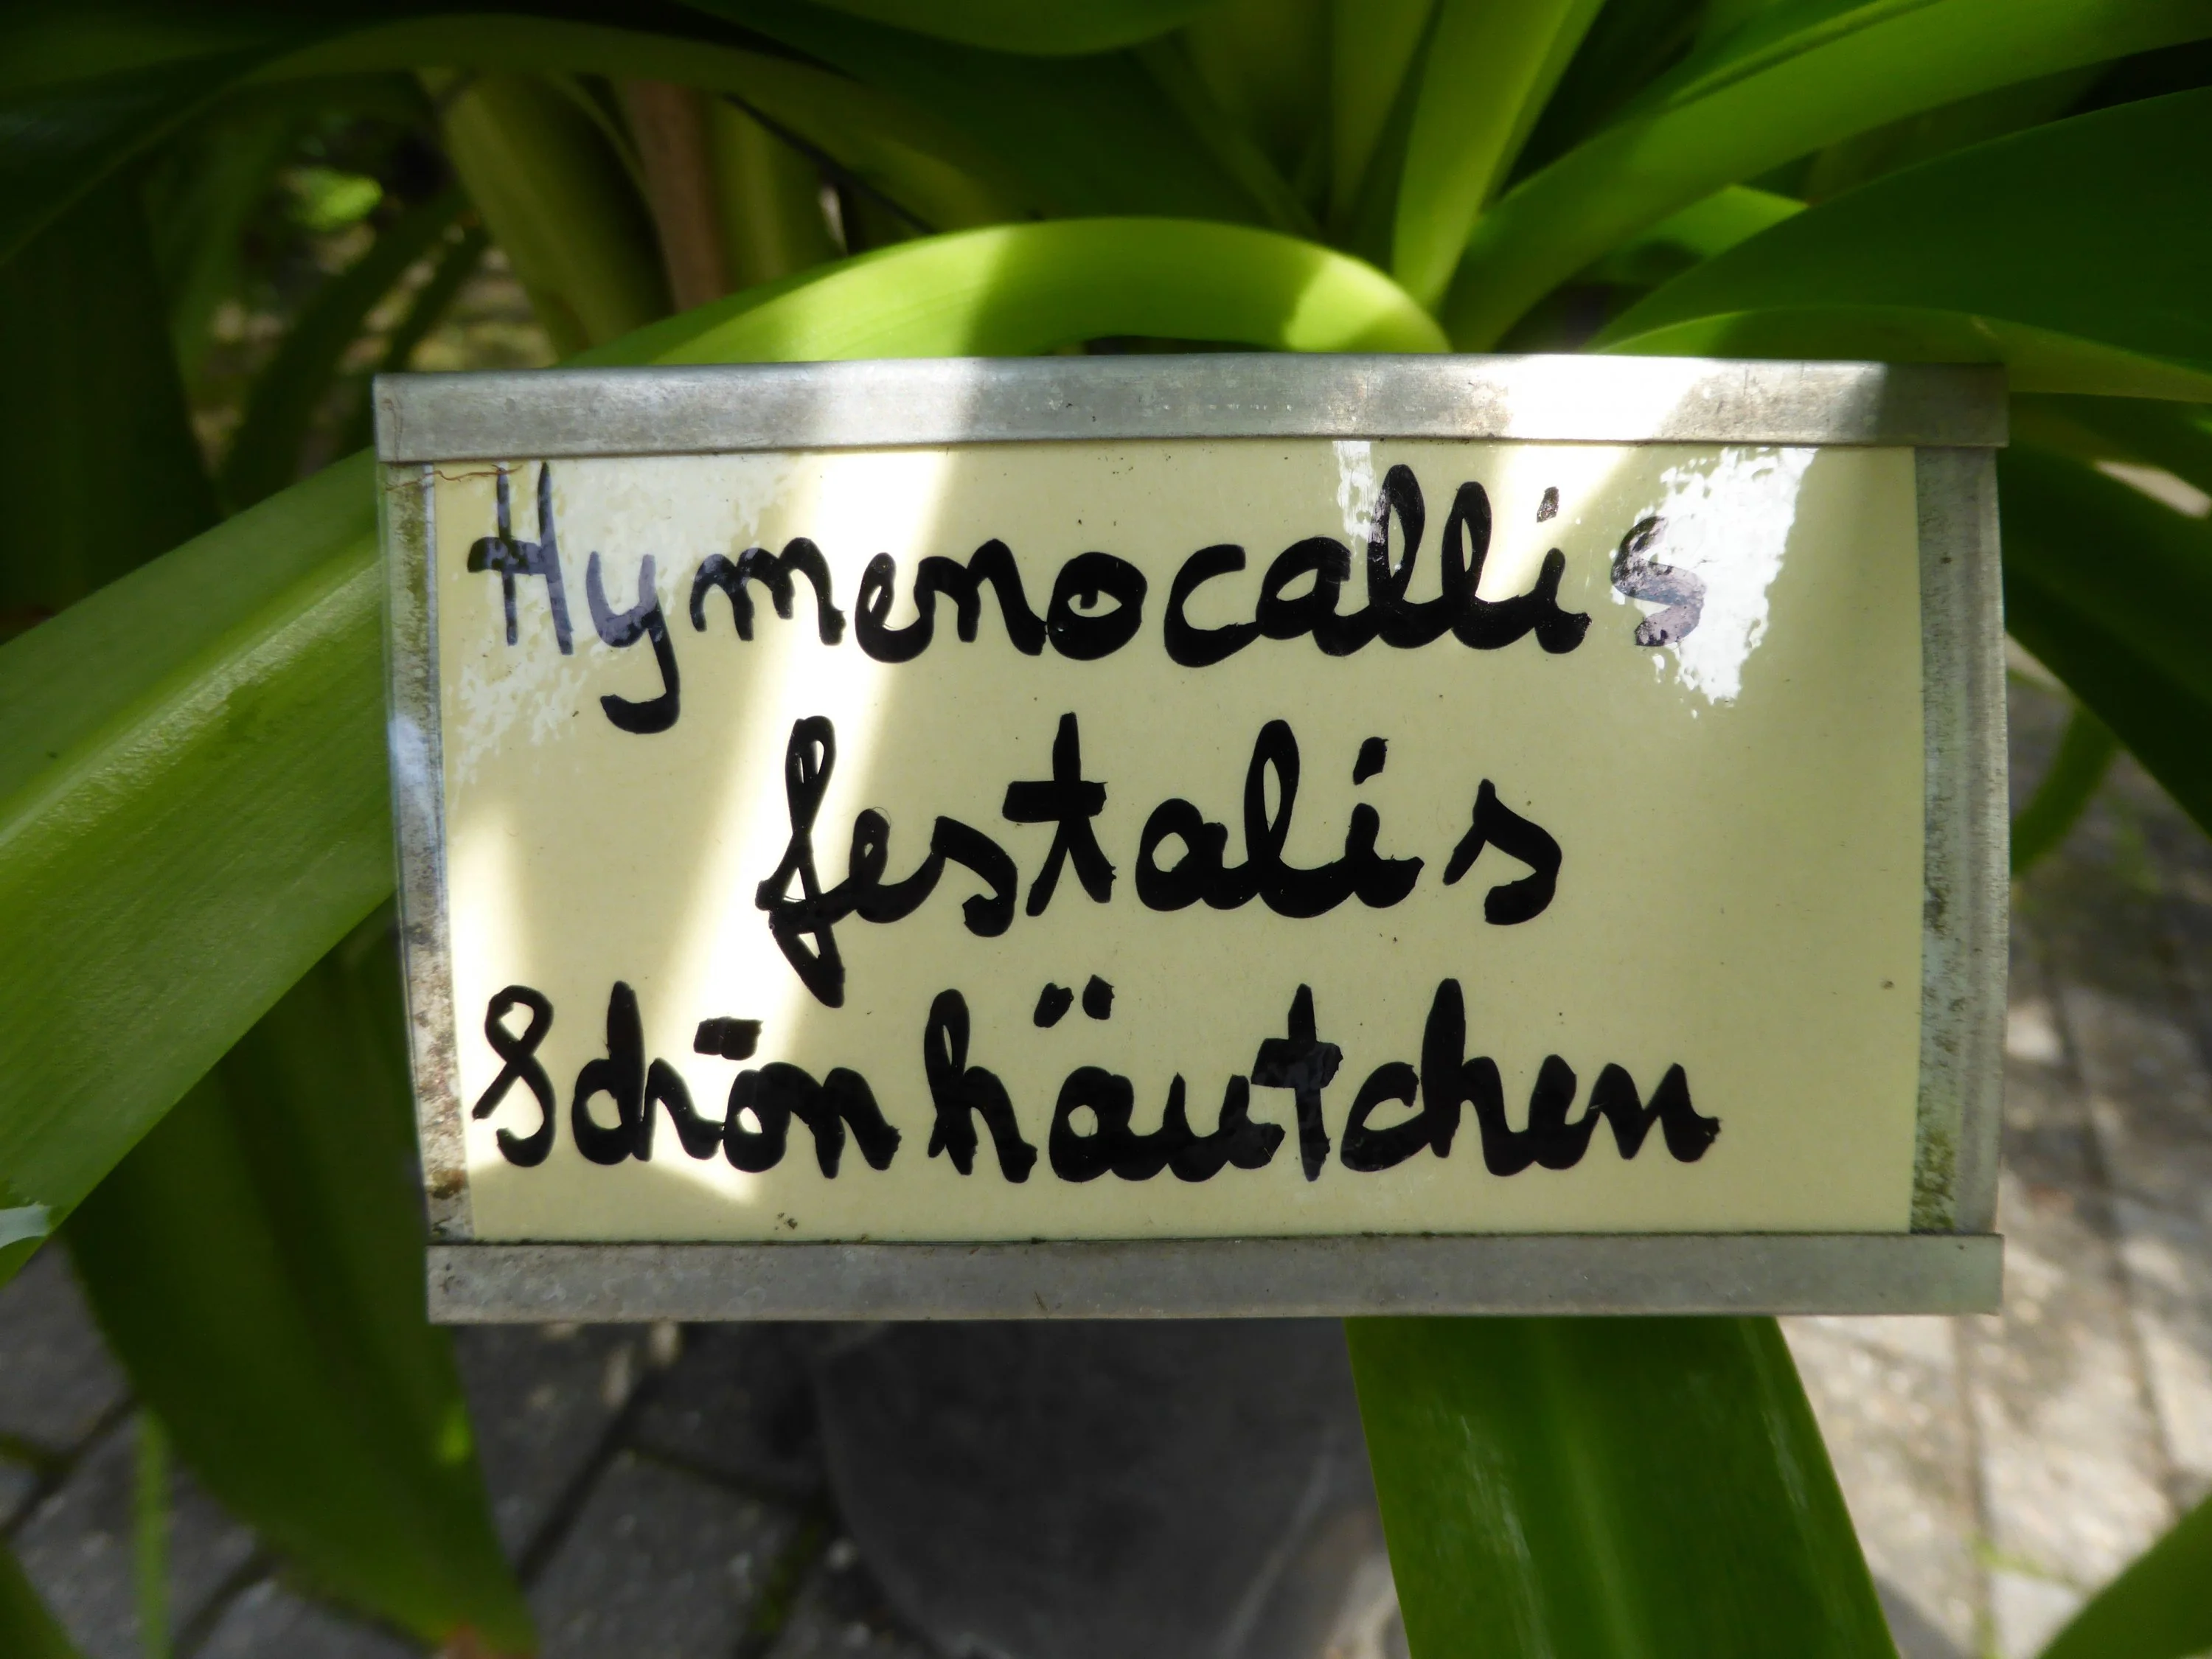 Hymenocallis
festalis
Schönhäutchen